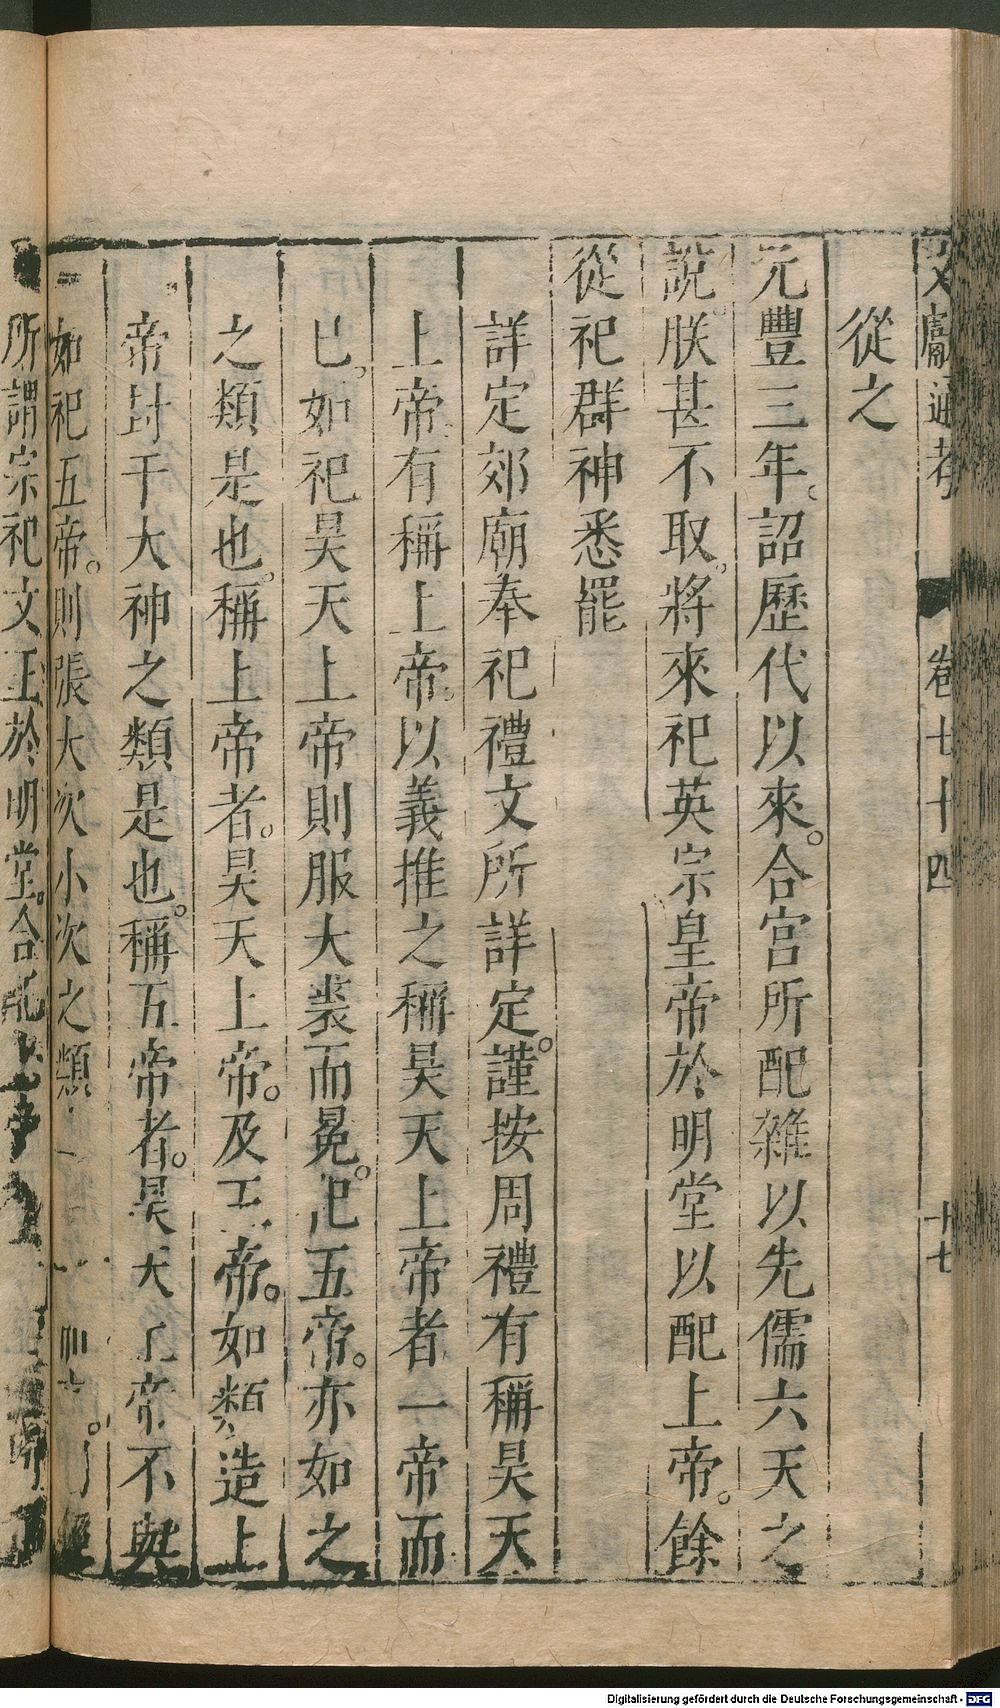 文獻通考 卷七十四 十七
從之
元豐三年詔歷代以來。合宮所配雜以先儒六天之
說朕甚不取。將來祀英宗皇帝於明堂以配上帝。餘
從祀群神悉罷
詳定郊廟奉祀禮文所詳定。謹按周禮有稱昊天
上帝有稱上帝。以義推之稱昊天上帝者一帝而
已。如祀昊天上帝則服大裘而冕。祀五帝。亦如之
之類是也。稱上帝者。昊天上帝。及五帝。如類造上
帝封于大神之類是也。稱五帝者。昊天上帝不與
如祀五帝。則張大次小次之類
所謂宗祀文王於明堂。合配上帝
Digitalisierung gefördert durch die Deutsche Forschungsgemeinschaft - DFG